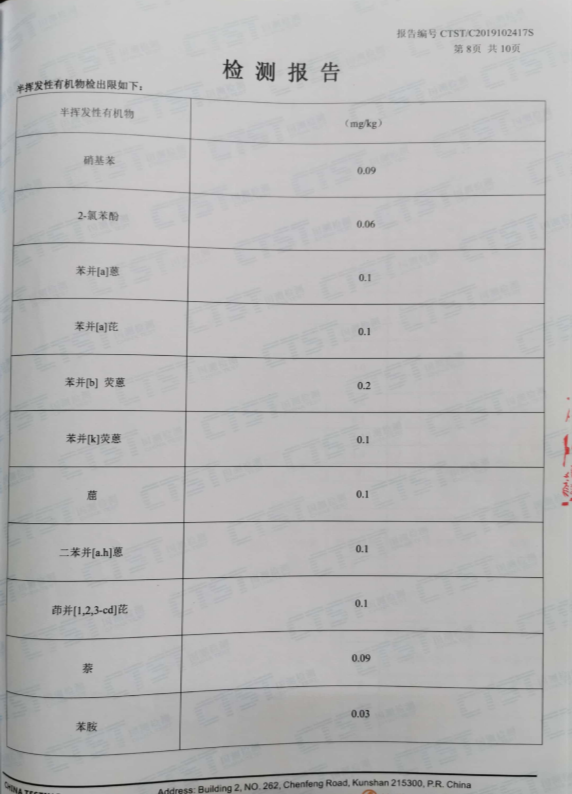 报告编号 CTST/C2019102417S
第 8页 共 10页
检 测 报 告
半挥发性有机物检出限如下：
半挥发性有机物 （mg/kg）
硝基苯 0.09
2-氯苯酚 0.06
苯并[a]蒽 0.1
苯并[a]芘 0.1
苯并[b] 荧蒽 0.2
苯并[k]荧蒽 0.1
䓛 0.1
二苯并[a.h]蒽 0.1
茚并[1,2,3-cd]芘 0.1
萘 0.09
苯胺 0.03
Address: Building 2, NO. 262, Chenfeng Road, Kunshan 215300, P.R. China